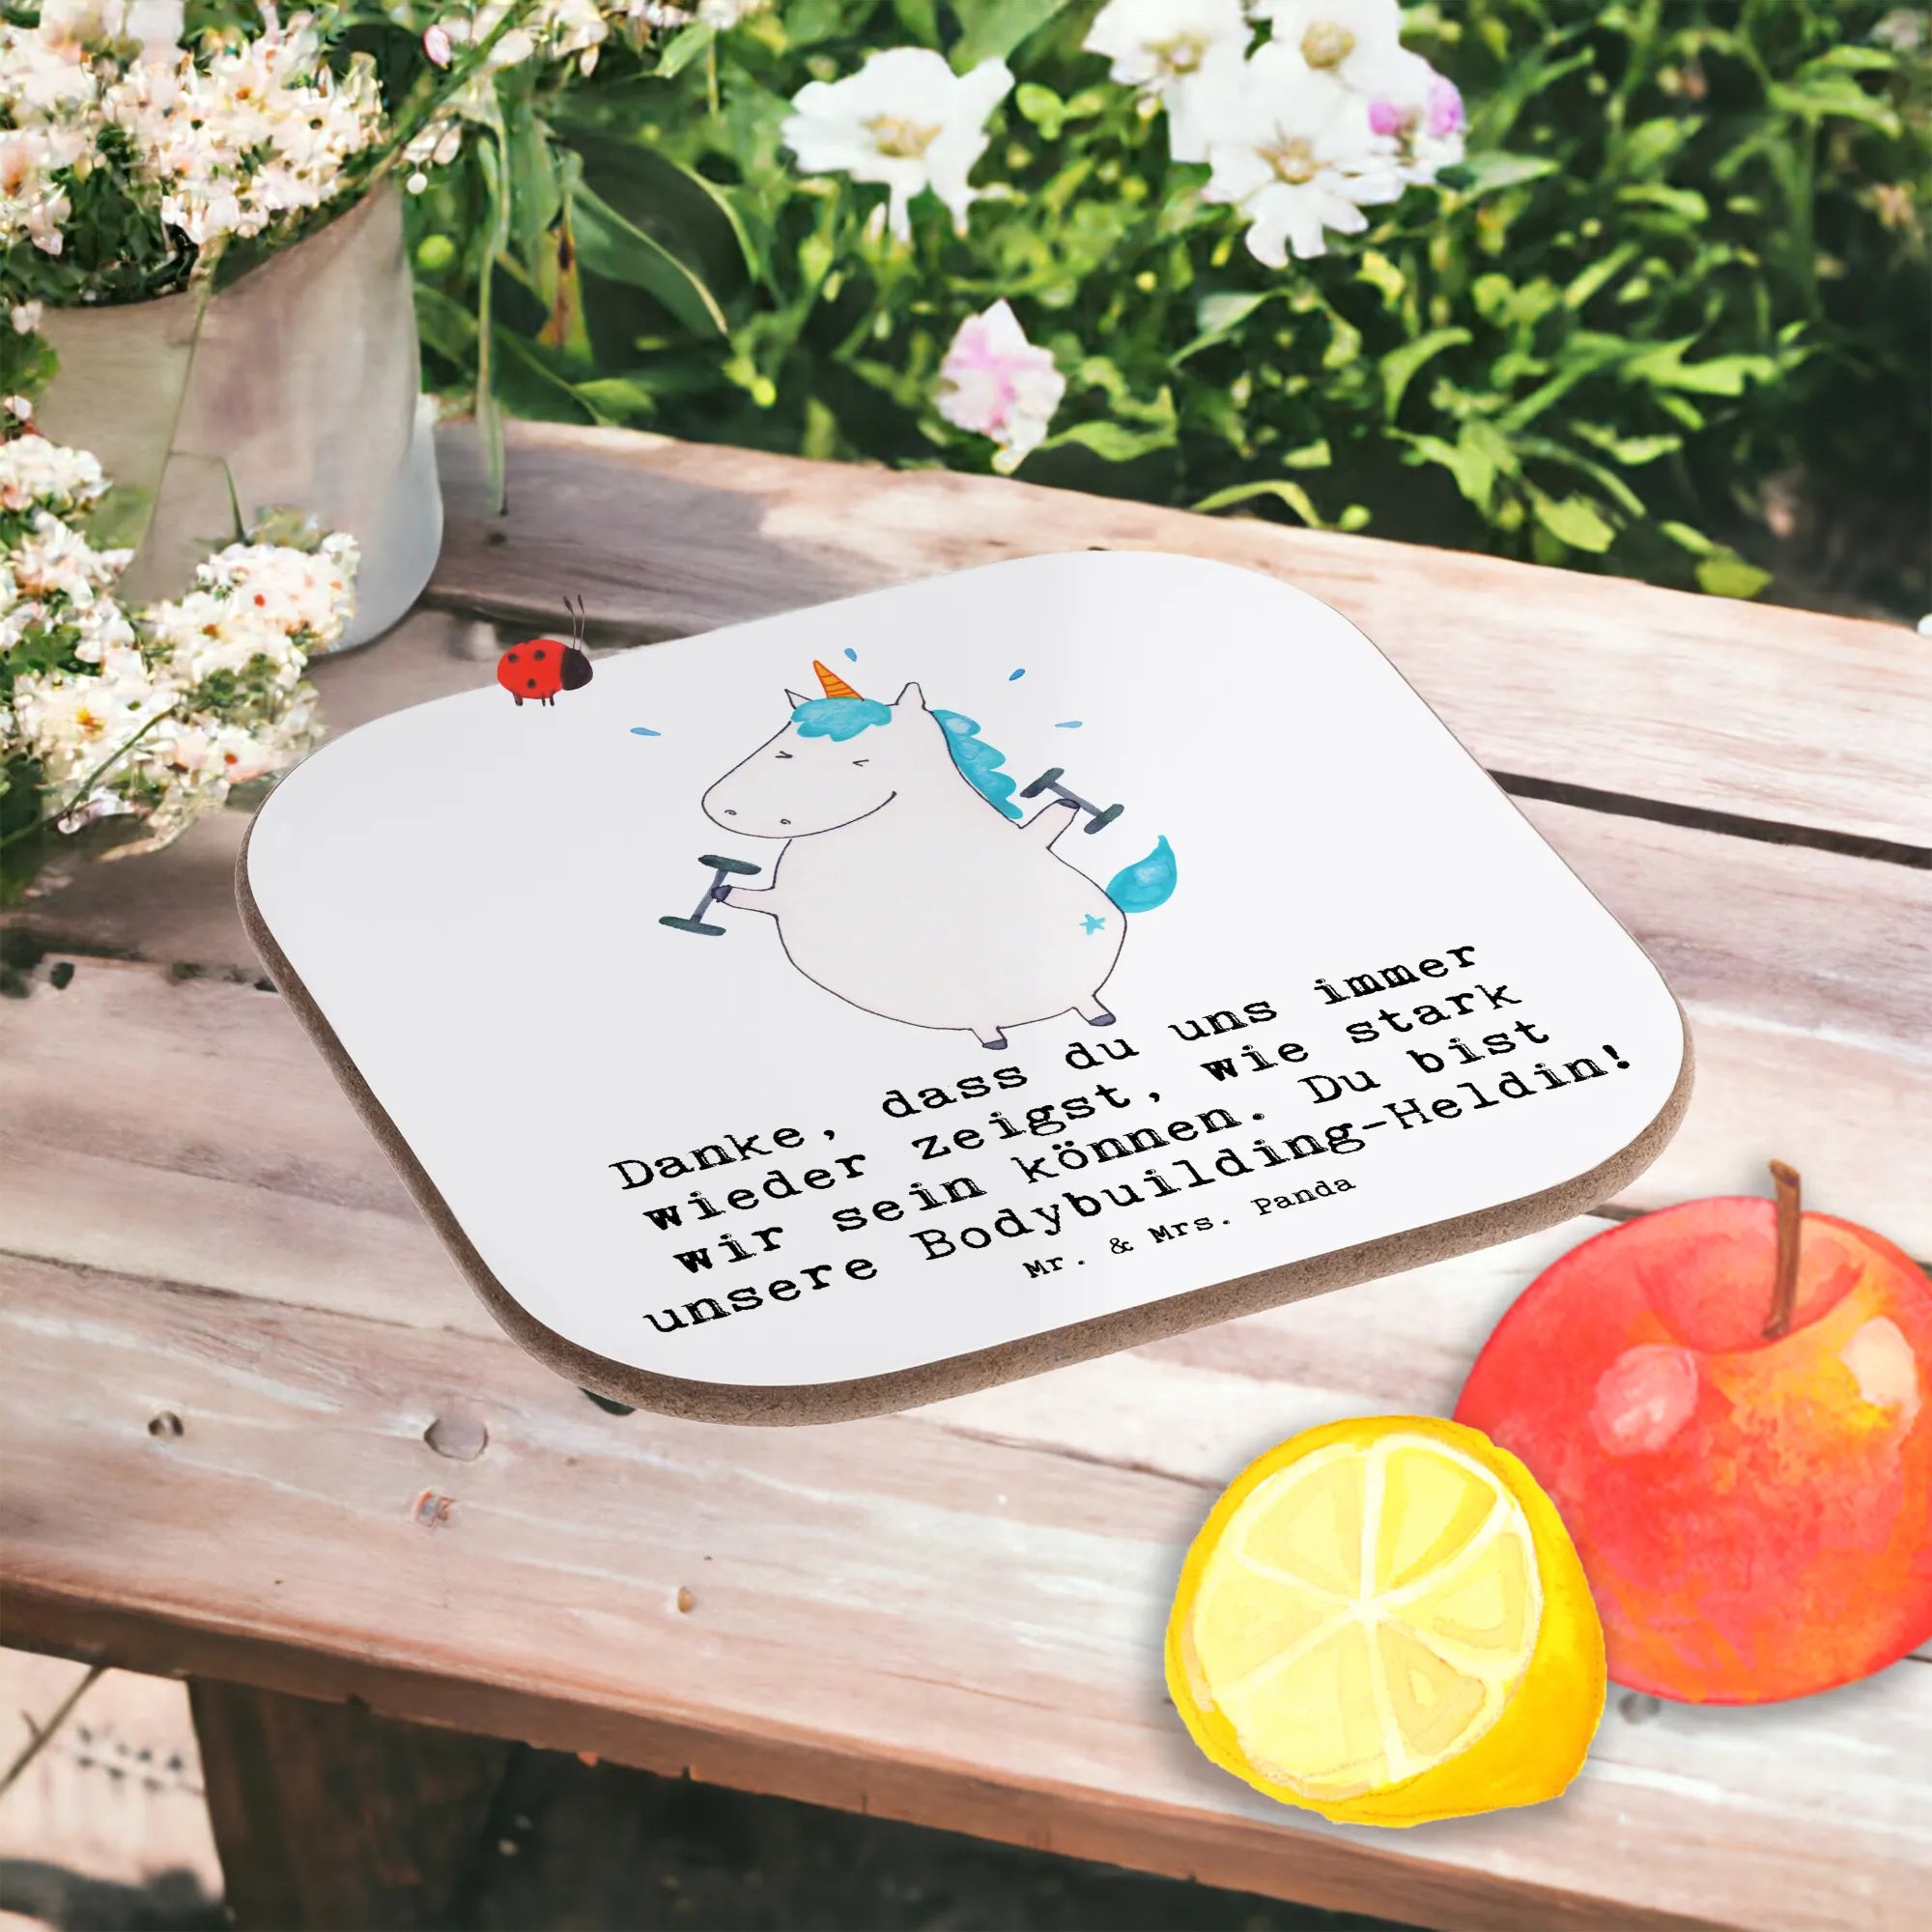 Danke, dass du uns immer
wieder zeigst, wie stark
wir sein können. Du bist
unsere Bodybuilding-Heldin!
Mr. & Mrs. Panda